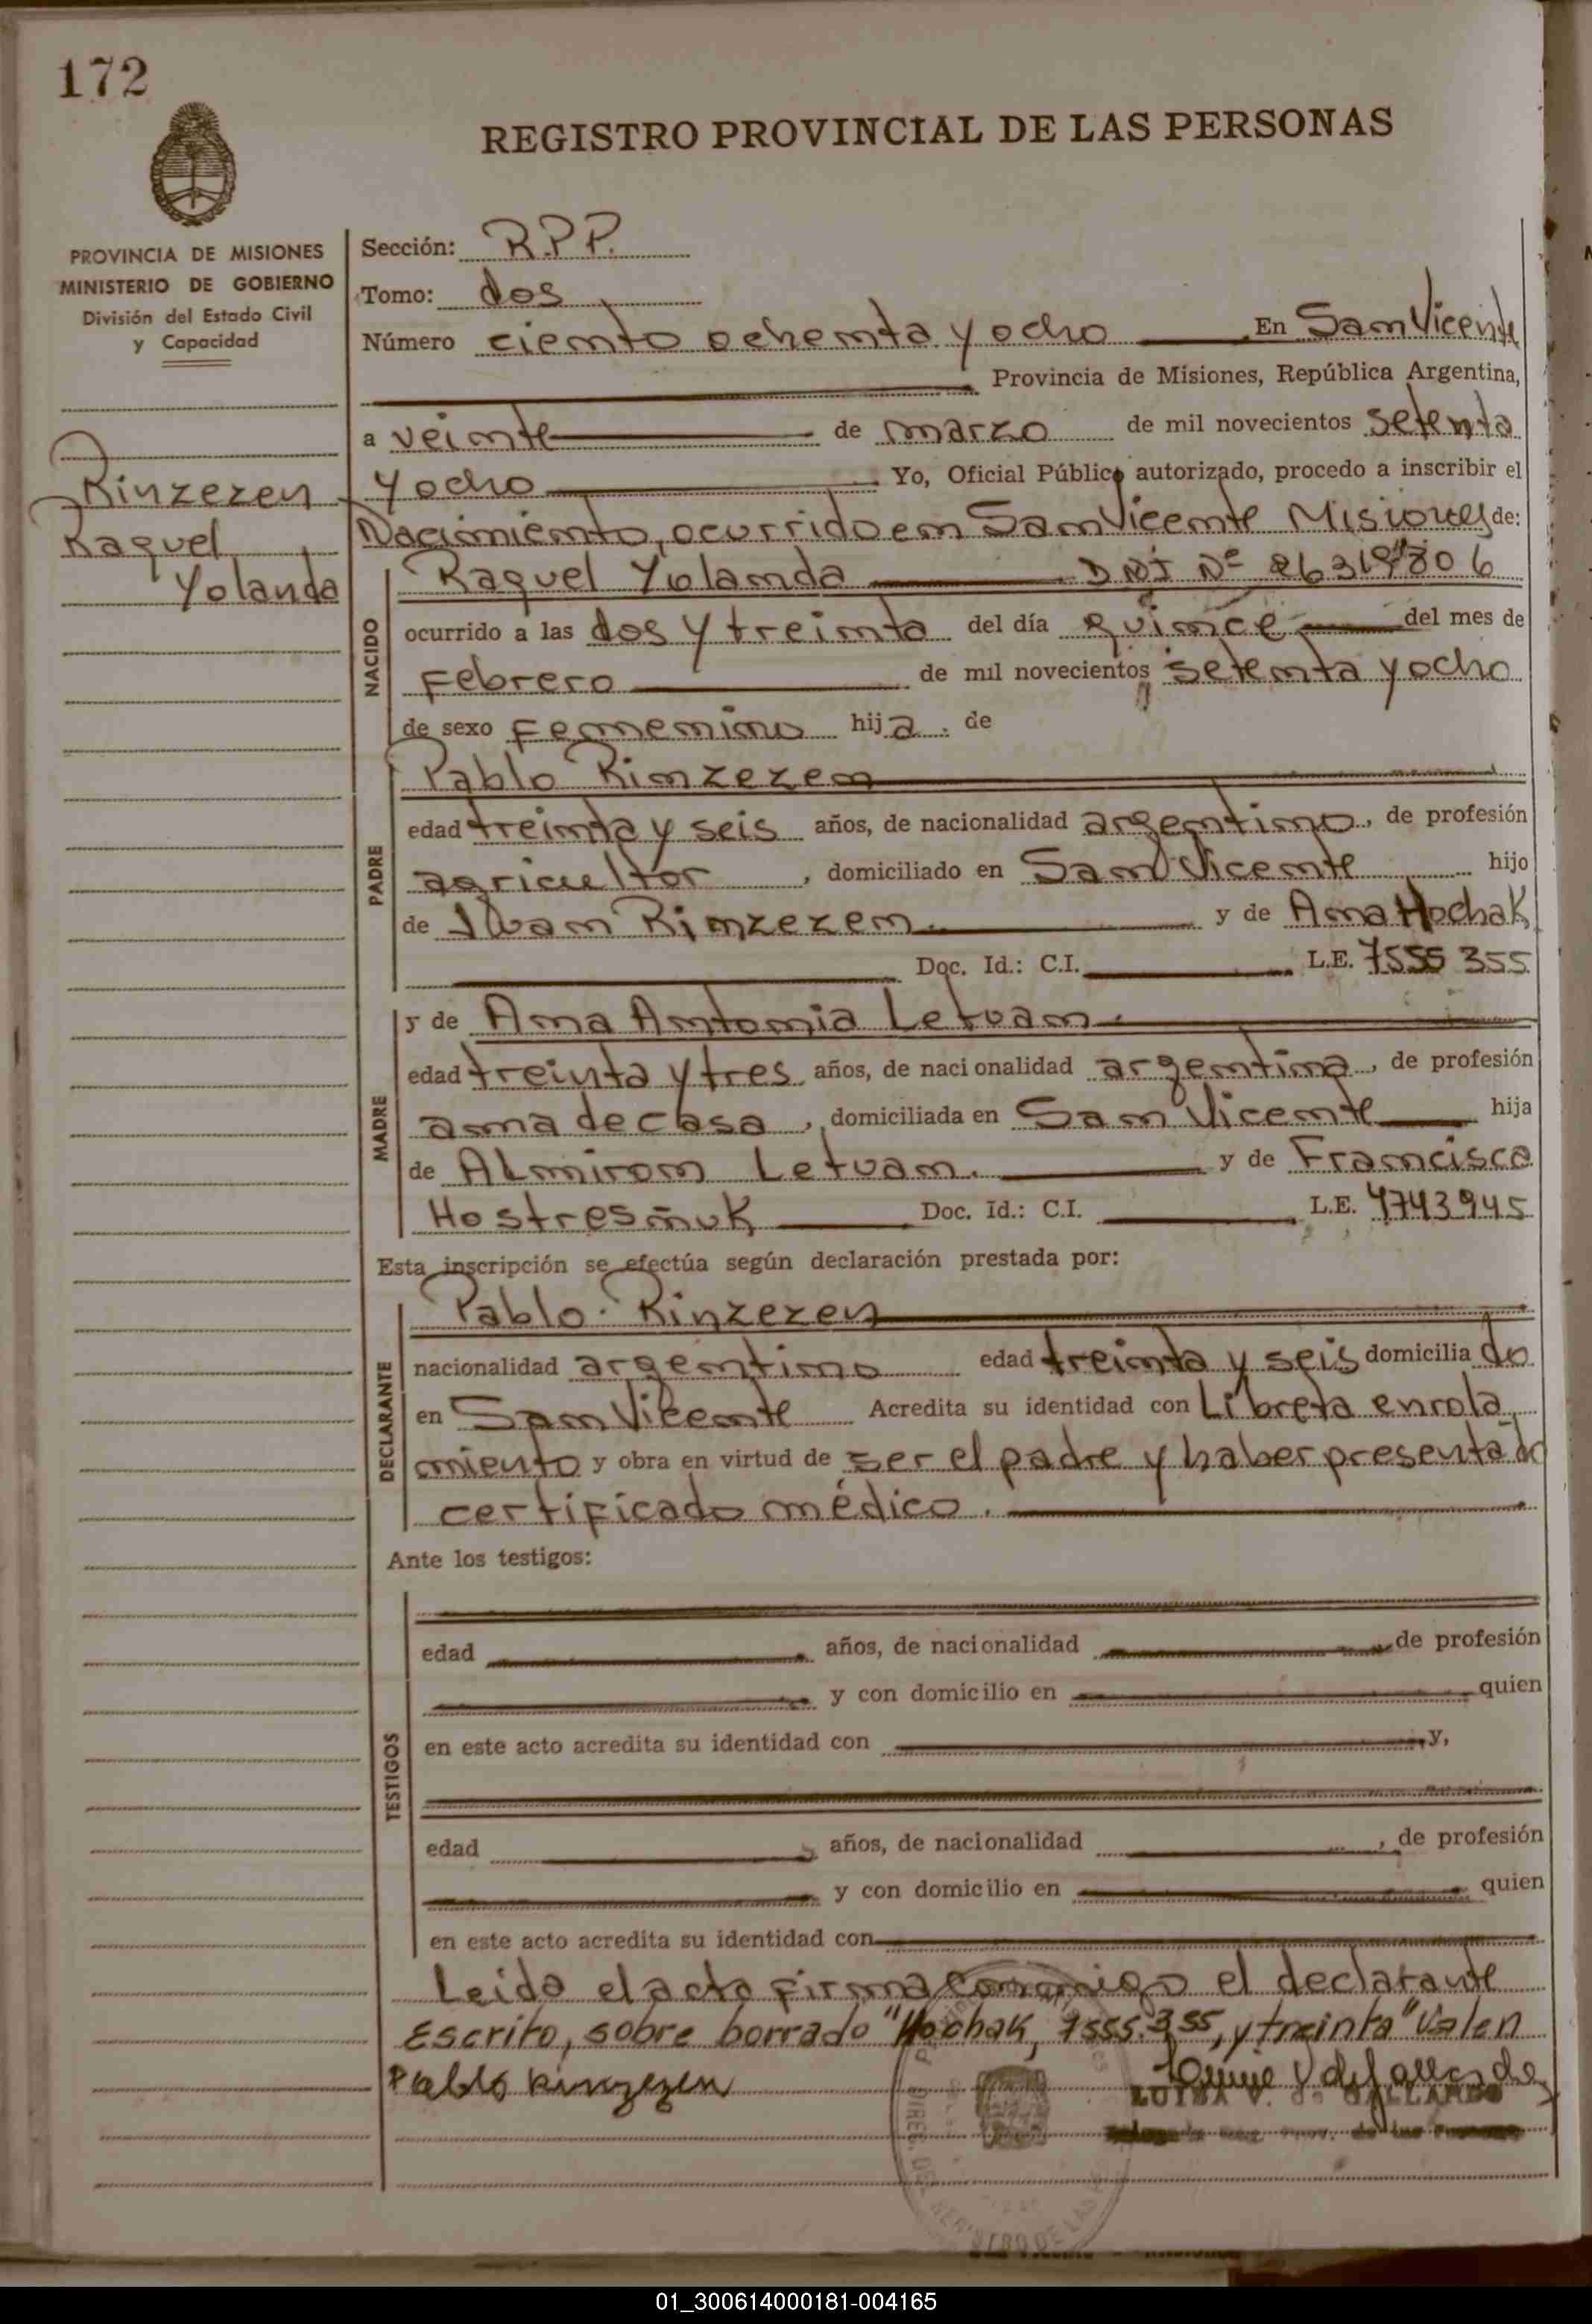 172
REGISTRO PROVINCIAL DE LAS PERSONAS
PROVINCIA DE MISIONES
MINISTERIO DE GOBIERNO
División del Estado Civil
y Capacidad
Rinzezen
Raquel
Yolanda
Sección: R.P.P.
Tomo: dos
Número ciento ochenta y ocho En San Vicente
Provincia de Misiones, República Argentina,
a veinte de marzo de mil novecientos setenta
y ocho Yo, Oficial Público autorizado, procedo a inscribir el
Nacimiento, ocurrido en San Vicente Misiones de:
NACIDO
Raquel Yolanda DNI Nº
ocurrido a las dos y treinta del día quince del mes de
Febrero de mil novecientos setenta y ocho
de sexo femenino hija. de
PADRE
Pablo Rinzezen
edad treinta y seis años, de nacionalidad argentino, de profesión
agricultor, domiciliado en San Vicente hijo
de Ivan Rinzezen y de Ana Hochak
Doc. Id.: C.I. L.E. 7555355
MADRE
y de Ana Antonia Letvan.
edad treinta y tres años, de nacionalidad argentina, de profesión
ama de casa, domiciliada en San Vicente hija
de Almiron Letvan. y de Francisca
Hostresñuk Doc. Id.: C.I. L.E. 4743945
Esta inscripción se efectúa según declaración prestada por:
DECLARANTE
Pablo Rinzezen
nacionalidad argentino edad treinta y seis domiciliado
en San Vicente Acredita su identidad con Libreta enrola
miento y obra en virtud de ser el padre y haber presentado
certificado médico.
Ante los testigos:
TESTIGOS
edad años, de nacionalidad de profesión
y con domicilio en quien
en este acto acredita su identidad con y,
edad, años, de nacionalidad, de profesión
y con domicilio en quien
en este acto acredita su identidad con
Leida el acta firma conmigo el declarante
Escrito, sobre borrado "Hochak, 7555.355, y treinta" Valen
Pablo Rinzezen
LUISA V. de GALLARDO
01_300614000181-004165